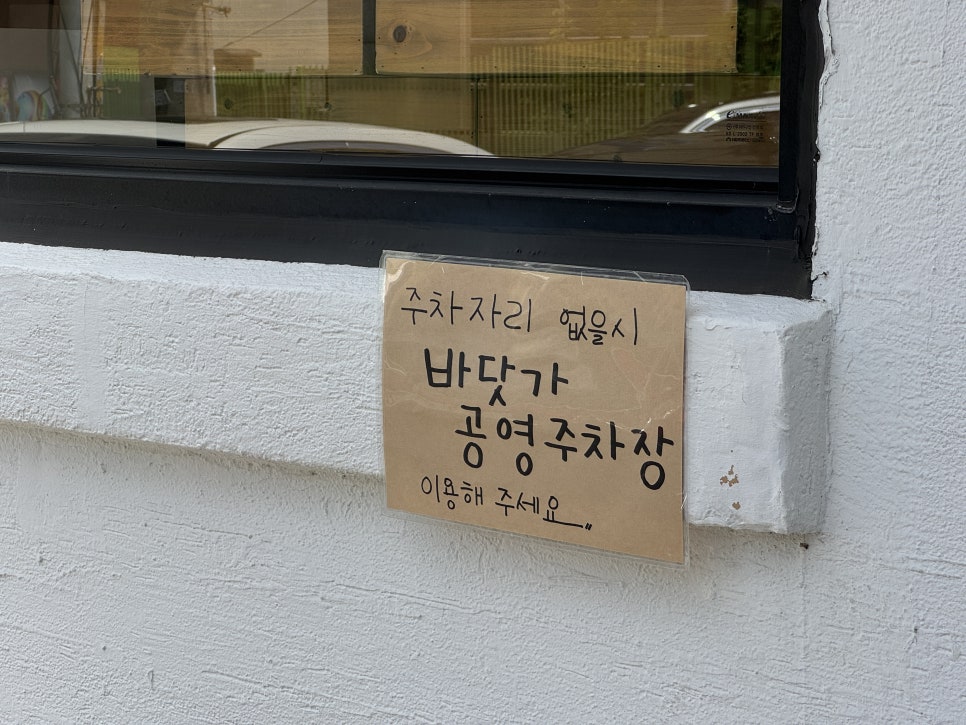 주차자리 없을시
바닷가
공영주차장
이용해 주세요